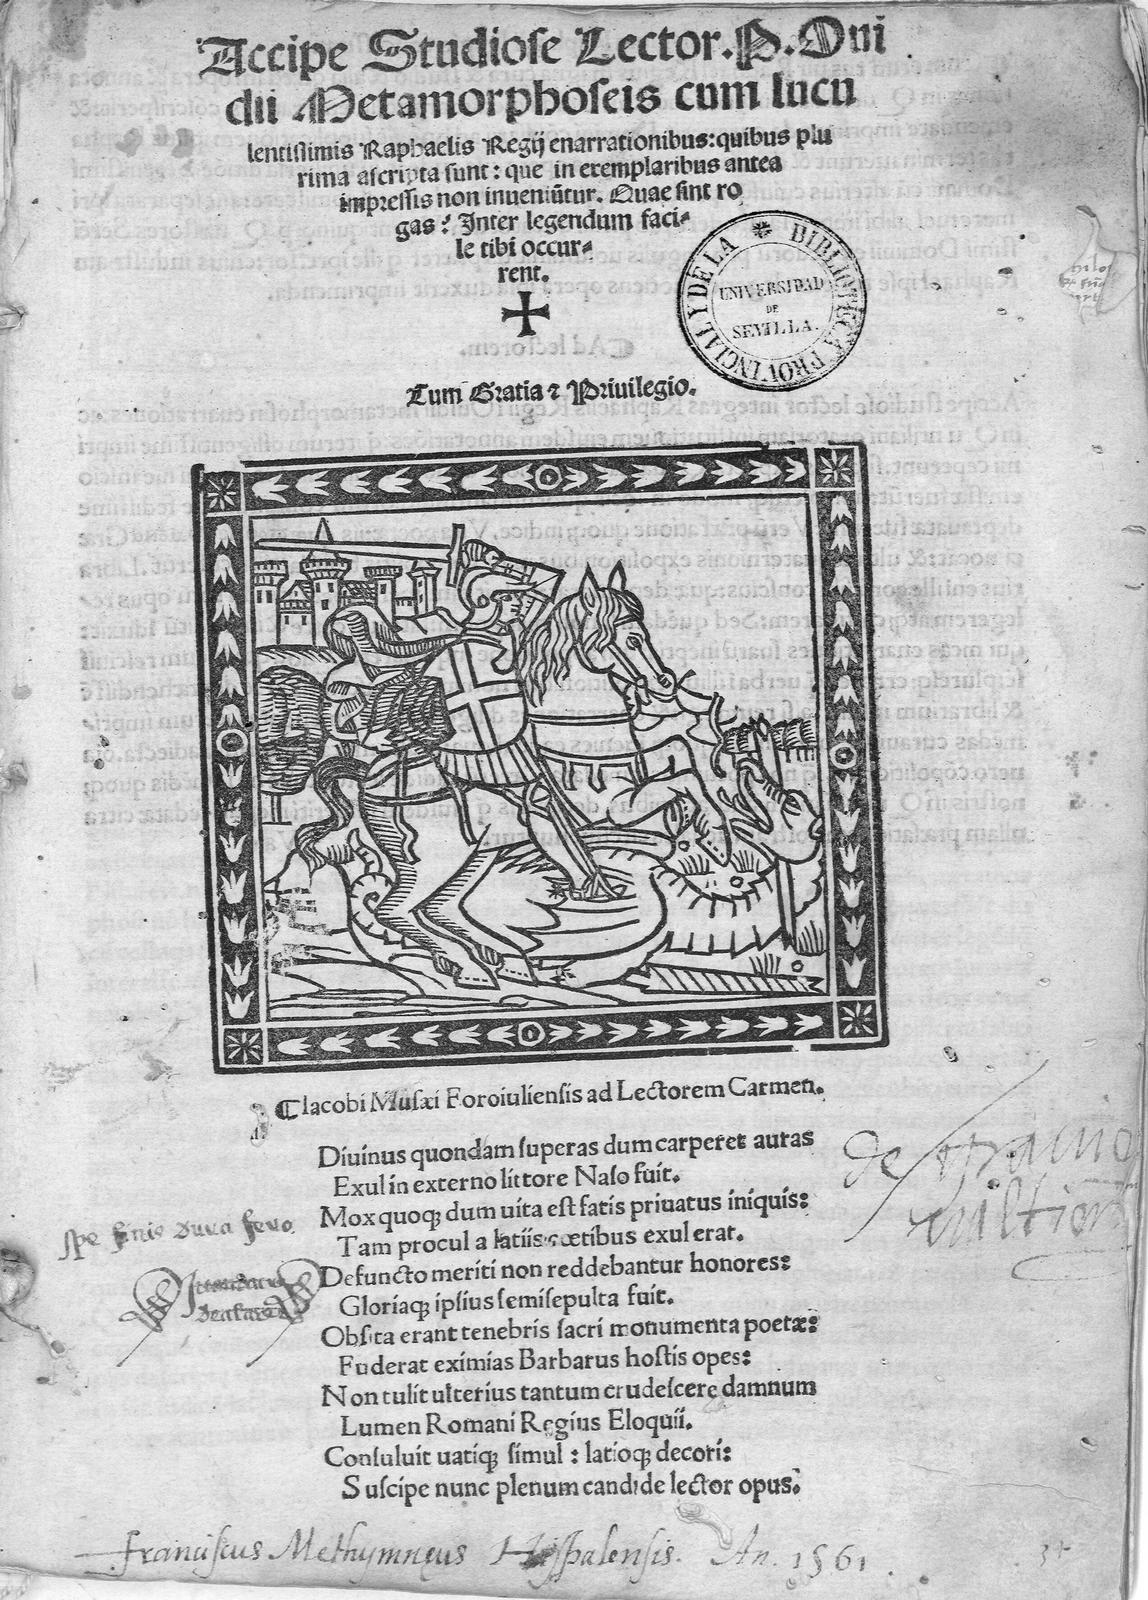 Accipe Studiose Lector. P. Oui
dii Metamorphoseis cum lucu
lentissimis Raphaelis Regij enarrationibus: quibus plu
rima ascripta sunt: que in exemplaribus antea
impressis non inueniūtur. Quae sint ro
gas: Inter legendum faci-
le tibi occur-
rent.
BIBLIOTECA PROVINCIAL Y DE LA
UNIVERSIDAD
DE
SEVILLA.
Cum Gratia ⁊ Priuilegio.
¶ Iacobi Musæi Foroiuliensis ad Lectorem Carmen.
Diuinus quondam superas dum carperet auras
Exul in externo littore Naso fuit.
Mox quoqꝫ dum uita est fatis priuatus iniquis:
Tam procul a latiis cœtibus exul erat.
Defuncto meriti non reddebantur honores:
Gloriaqꝫ ipsius semisepulta fuit.
Obsita erant tenebris sacri monumenta poetæ:
Fuderat eximias Barbarus hostis opes:
Non tulit ulterius tantum crudescere damnum
Lumen Romani Regius Eloquii.
Consuluit uatiqꝫ simul: latioqꝫ decori:
Suscipe nunc plenum candide lector opus.
spe finis dura fero
Franciscus Methymneus Hispalensis. An. 1561